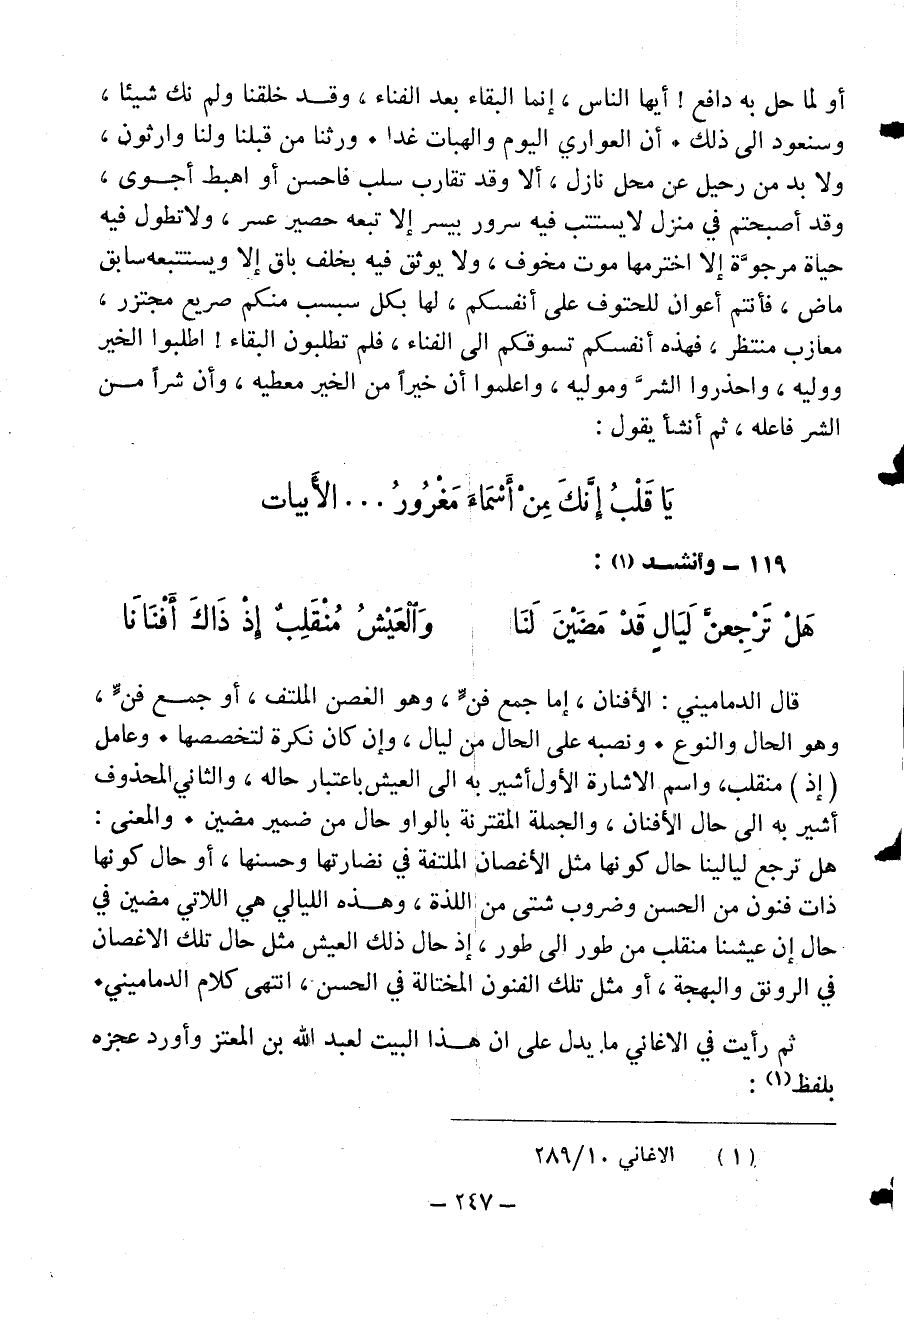 أو لما حل به دافع ! أيها الناس ، إنما البقاء بعد الفناء ، وقـــد خلقنا ولم نك شيئا ،
وسنعود الى ذلك • أن العواري اليوم والهبات غدا • ورثنا من قبلنا ولنا وارثون ،
ولا بد من رحيل عن محل نازل ، ألا وقد تقارب سلب فاحسن أو اهبط أجــوى ،
وقد أصبحتم في منزل لايستتب فيه سرور بيسر إلا تبعه حصير عسر ، ولاتطول فيه
حياة مرجوّة إلا اخترمها موت مخوف ، ولا يوثق فيه بخلف باق إلا ويستتبعه سابق
ماض ، فأنتم أعوان للحتوف على أنفسكم ، لها بكل سبسب منكم صريع مجتزر ،
معازب منتظر ، فهذه أنفسكم تسوقكم الى الفناء ، فلم تطلبون البقاء ! اطلبوا الخير
ووليه ، واحذروا الشرَّ وموليه ، واعلموا أن خيراً من الخير معطيه ، وأن شراً مــن
الشر فاعله ، ثم أنشأ يقول :
يَا قَلْبُ إِنَّكَ مِنْ أَسْمَاءَ مَغْرُورُ ... الأَبيات
١١٩ – وأنشــد (١) :
هَلْ تَرْجِعنَّ لَيَالٍ قَدْ مَضَيْنَ لَنَا وَالْعَيْشُ مُنْقَلِبٌ إِذْ ذَاكَ أَفْنَانَا
قال الدماميني : الأفنان ، إما جمع فنٍّ ، وهو الغصن الملتف ، أو جمــع فنٍّ ،
وهو الحال والنوع • ونصبه على الحال من ليال ، وإن كان نكرة لتخصصها • وعامل
(إذ) منقلب، واسم الاشارة الأول أشير به الى العيش باعتبار حاله ، والثاني المحذوف
أشير به الى حال الأفنان ، والجملة المقترنة بالواو حال من ضمير مضين • والمعنى :
هل ترجع ليالينا حال كونها مثل الأغصان الملتفة في نضارتها وحسنها ، أو حال كونها
ذات فنون من الحسن وضروب شتى من اللذة ، وهــذه الليالي هي اللاتي مضين في
حال إن عيشنا منقلب من طور الى طور ، إذ حال ذلك العيش مثل حال تلك الاغصان
في الرونق والبهجة ، أو مثل تلك الفنون المختالة في الحسن ، انتهى كلام الدماميني•
ثم رأيت في الاغاني ما يدل على ان هــذا البيت لعبد الله بن المعتز وأورد عجزه
بلفظ(١) :
(١) الاغاني ٢٨٩/١٠
– ٢٤٧ –